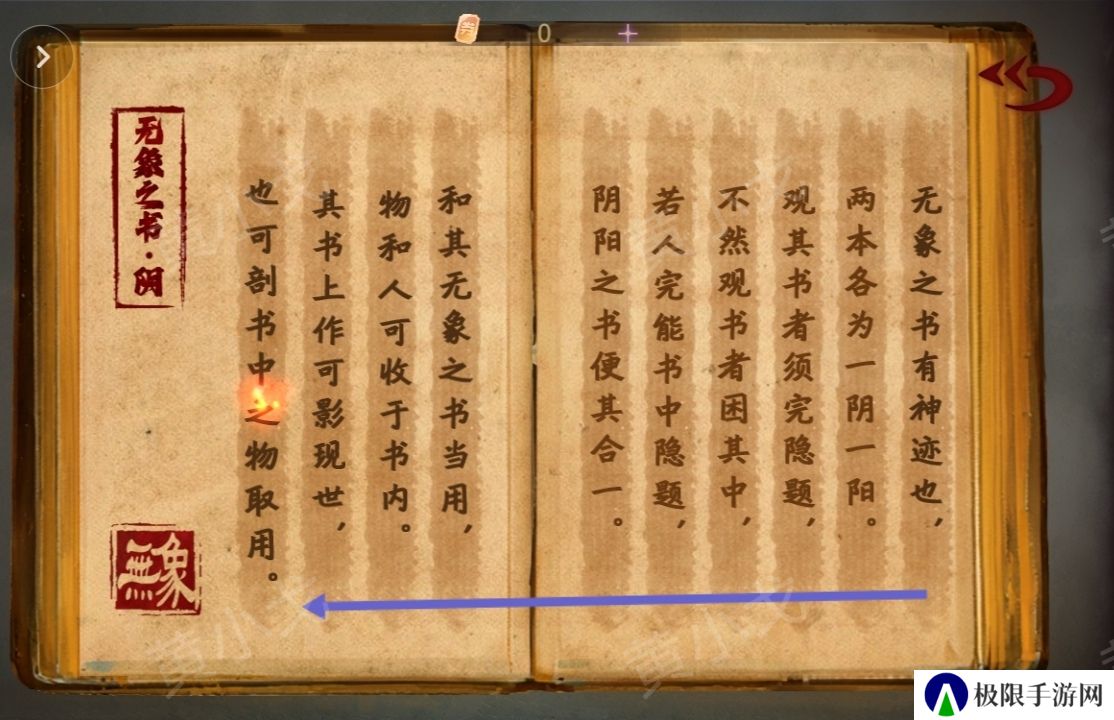 0
无象之书有神迹也，
两本各为一阴一阳。
观其书者须完隐题，
不然观书者困其中，
若人完能书中隐题，
阴阳之书便其合一。
和其无象之书当用，
物和人可收于书内。
其书上作可影现世，
也可剖书中之物取用。
无象之书·阴
無象
极限手游网